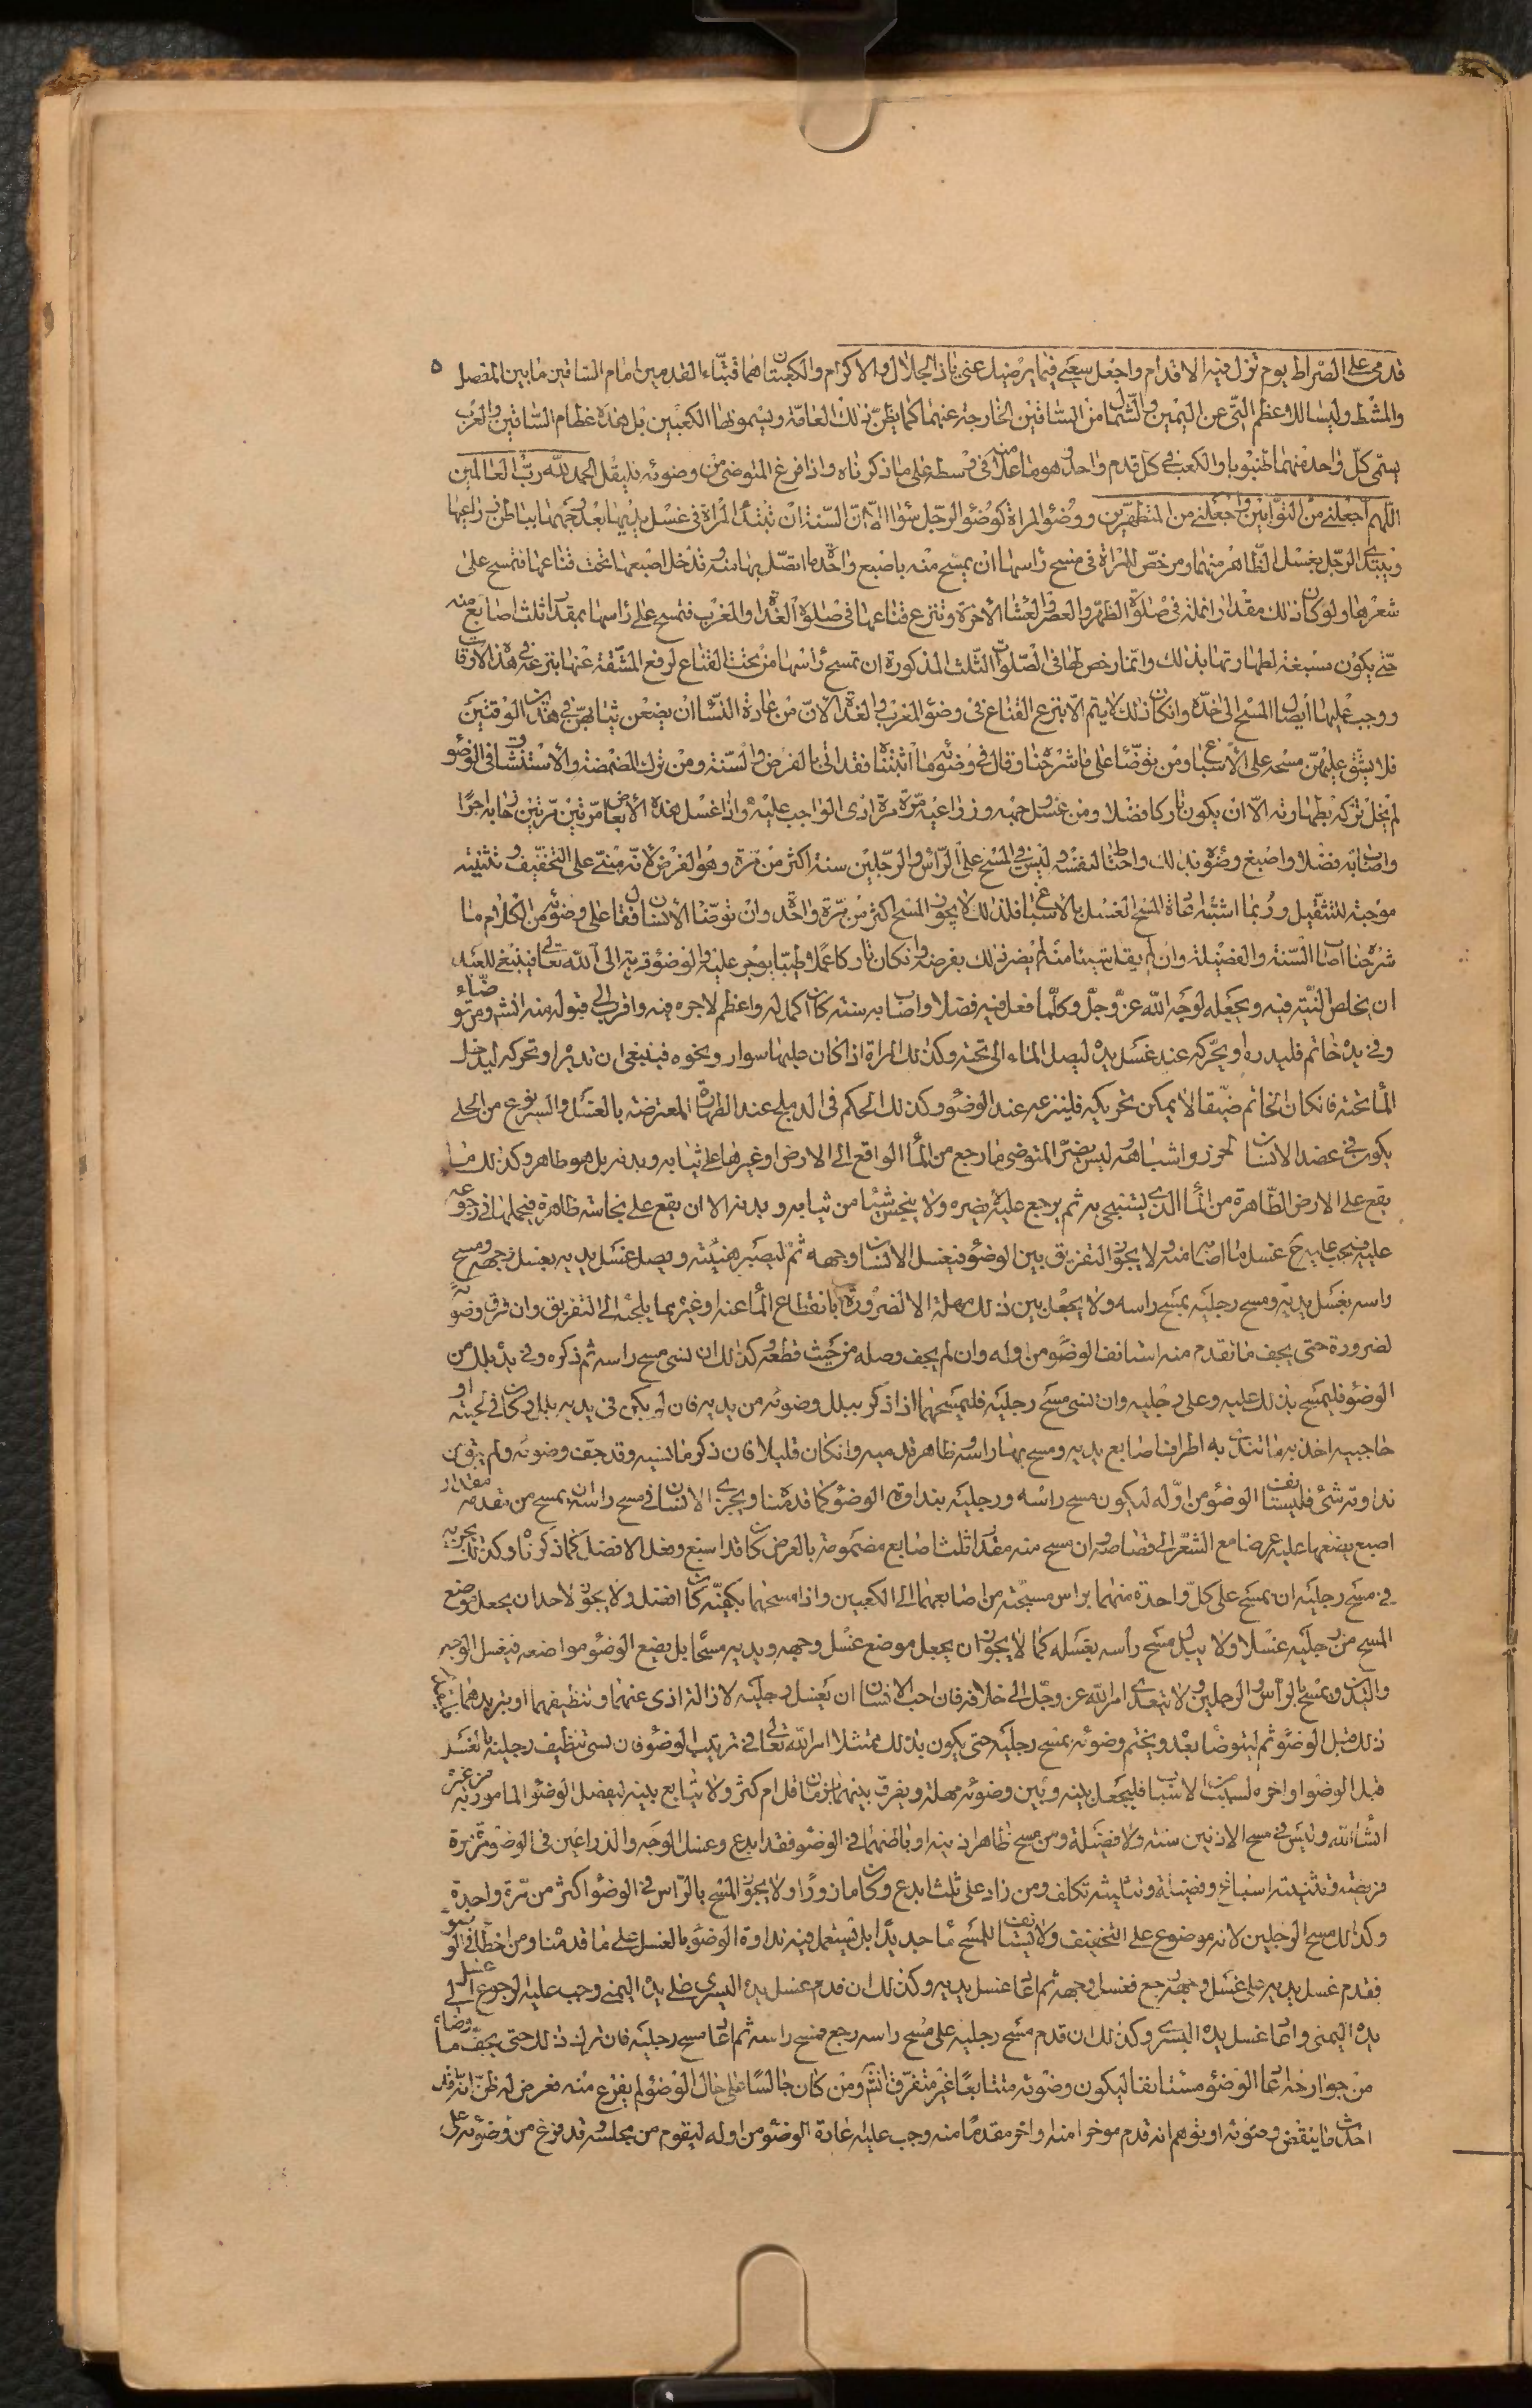 قدمي على الصراط يوم تزل فيه الاقدام واجعل سعيي فيما يرضيك عني يا ذا الجلال والاكرام والكعبان هما قبتا القدمين امام الساقين ما بين المفصل ٥
والمشط وليسا للاعظم التي عن اليمين والشمال من الساقين الخارجة عنهما كما يظن ذلك العامة ويسمونها الكعبين بل هذه عظام الساقين والعرب
يسمى كل واحدة منهما ظنبوبا والكعب في كل قدم واحد وهو ما علا منه في وسطه على ما ذكرناه واذا فرغ المتوضى من وضوئه فليقل الحمد لله رب العالمين
اللهم اجعلني من التوابين واجعلني من المتطهرين ووضوء المراة كوضوء الرجل سواء الا ان السنة ان تبتدا المراة في غسل يديها بعد وجهها بباطن ذراعيها
ويبتدى الرجل بغسل الظاهر منهما ومرخص للمراة في مسح راسها ان يمسح منه باصبع واحدة ما اتصل بها منه وتدخل اصبعها تحت قناعها فتمسح على
شعرها ولو كان ذلك مقدار انملة في صلوة الظهر والعصر والعشا الاخرة وتنزع قناعها في صلوة الغداة والمغرب فتمسح على راسها بمقدار ثلث اصابع منه
حتى يكون مسبغة لطهارتها بذلك وانما رخص لها في الصلوات الثلث المذكورة ان تمسح راسها من تحت القناع لرفع المشقة عنها بنزعه في هذه الاوقات
ووجب عليها ايصال المسح الى حده وان كان ذلك لا يتم الا بنزع القناع في وضوء المغرب والغداة لان من عادة النساء ان يضعن ثيابهن في هذين الوقتين
فلا يشق عليهن مسحه على الاسباغ ومن توضا على ما شرحنا وقال في وضوئه ما اثبتنا فقد اتى بالفرض والسنة ومن ترك المضمضة والاستنشاق في الوضوء
لم يخل تركه بطهارته الا ان يكون تاركا فضلا ومن غسل وجهه وذراعيه مرة مرة ادى الواجب عليه واذا غسل هذه الابعاض مرتين مرتين حاز به اجرا
واصاب به فضلا واسبغ وضوءه بذلك واحتاط لنفسه وليس في المسح على الراس والرجلين سنة اكثر من مرة وهو الفرض لانه مبني على التخفيف وتثنيته
موجبة للتثقيل وربما اشتبه حالة المسح الغسل بالاسباغ فلذلك لا يجوز المسح اكثر من مرة واحدة وان توضا الانسان فقال على وضوئه من الكلام ما
شرحنا اصاب السنة والفضيلة وان لم يقل شيئا منه لم يضر ذلك بفرضه وان كان تاركا عملا طيبا يوجر عليه والوضوء قربة الى الله تعالى فينبغي للعبد
ان يخلص النية فيه ويجعله لوجه الله عز وجل وكلما فعل فيه فضلا واصاب به سنته كان اكمل له واعظم لاجره فيه واقرب الى قبوله منه انشه ومن توضاء
وفي يده خاتم فليدره او يحركه عند غسل يده ليصل الماء الى تحته وكذلك المراة اذا كان عليها سوار ونحوه فينبغي ان تديره او تحركه ليدخل
الما تحته فان كان الخاتم ضيقا لا يمكن تحريكه فلينزعه عند الوضوء وكذلك الحكم في الدملج عند الطهارة المعترضة بالغسل والسير ونوع من الحلي
يكون في عضد الانسان للحرز واشباهه وليس يضر المتوضى ما رجع من الما الواقع الى الارض او غيرها على ثيابه وبدنه بل هو طاهر وكذلك ما
يقع على الارض الطاهرة من الما الذي يستنجى به ثم يرجع عليه لا يضره ولا ينجس شيئا من ثيابه وبدنه الا ان يقع على نجاسة ظاهرة فيحملها في رجوعه
عليه فيجب عليه ح غسل ما اصابه منه ولا يجوز التفريق بين الوضوء فيغسل الانسان وجهه ثم ليصبر هنيئة ويصل غسل يديه بغسل وجهه ومسح
راسه بغسل يديه ومسح رجليه بمسح راسه ولا يجعل بين ذلك مهلة الا لضرورة بانقطاع الما عنه او غيره مما يلجئه الى التفريق وان فرق وضوئه
لضرورة حتى يجف ما تقدم منه استانف الوضوء من اوله وان لم يجف وصله من حيث قطعه وكذلك ان نسي مسح راسه ثم ذكره وفي يده بلل من
الوضوء فليمسح بذلك عليه وعلى رجليه وان نسى مسح رجليه فليمسحهما اذا ذكر ببلل وضوئه من يديه فان لم يكن في يديه بلل وكان في لحيته او
حاجبيه اخذ به ما تندى به اطراف اصابع يديه ومسح بها راسه وظاهر قدميه وان كان قليلا فان ذكر ما نسيه وقد جف وضوئه ولم يبق من
نداوته شئ فليستانف الوضوء من اوله ليكون مسح راسه ورجليه بنداوة الوضوء كما قدمنا ويجزى الانسان في مسح راسه ان يمسح من مقدمه مقدار
اصبع يضعها عليه عرضا مع الشعر الى قصاصه وان مسح منه مقدار ثلث اصابع مضمومة بالعرض كان قد اسبغ وفعل الافضل كما ذكرنا وكذلك يجزيه
في مسح رجليه ان يمسح على كل واحدة منهما براس مسبحته من اصابعهما الى الكعبين واذا مسحهما بكفيه كان افضل ولا يجوز لاحد ان يجعل موضع
المسح من رجليه غسلا ولا يبدل مسح راسه بغسله كما لا يجوز ان يجعل موضع غسل وجهه ويديه مسحا بل يضع الوضوء مواضعه فيغسل الوجه
واليدين ويمسح بالراس والرجلين ولا يتعدى امر الله عز وجل الى خلافه فان احب الانسان ان يغسل رجليه لازالة اذى عنهما وتنظيفهما او تبريدهما
ذلك قبل الوضوء ثم ليتوضا بعده ويختم وضوئه بمسح رجليه حتى يكون بذلك ممتثلا امر الله تعالى في ترتيب الوضوء فان نسى تنظيف رجليه بالغسل
قبل الوضوء او اخره لسبب من الاسباب فليجعل بينه وبين وضوئه مهلة ويفرق بينهما بزمان قل ام كثر ولا يتابع بينه ليفصل الوضوء المامور به من غيره
انشاالله وليس في مسح الاذنين سنة ولا فضيلة ومن مسح ظاهر اذنيه او باطنهما في الوضوء فقد ابدع وغسل الوجه والذراعين في الوضوء مرة مرة
فريضة وتثنيته اسباغ وفضيلة وتثليثه تكلف ومن زاد على ثلث ابدع وكان مازورا ولا يجوز المسح بالراس في الوضوء اكثر من مرة واحدة
وكذلك مسح الرجلين لانه موضوع على التخفيف ولا يستانف للمسح ماء جديدا بل يستعمل فيه نداوة الوضوء بالغسل على ما قدمنا ومن اخطا في الوضوء
فقدم غسل يديه على غسل وجهه رجع فغسل وجهه ثم اعاد غسل يديه وكذلك ان قدم غسل يده اليسرى على يده اليمنى وجب عليه الرجوع الى غسل
يده اليمنى واعاد غسل يده اليسرى وكذلك ان قدم مسح رجليه على مسح راسه رجع فمسح راسه ثم اعاد مسح رجليه فان ترك ذلك حتى يجف ما وضاه
من جوارحه اعاد الوضوء مستانفا ليكون وضوئه متتابعا غير متفرق انشه ومن كان جالسا على حال الوضوء لم يفرغ منه فعرض له ظن انه قد
احدث ما ينقض وضوئه او توهم انه قدم موخرا منه واخر مقدما منه وجب عليه اعادة الوضوء من اوله ليقوم من مجلسه وقد فرغ من وضوئه على